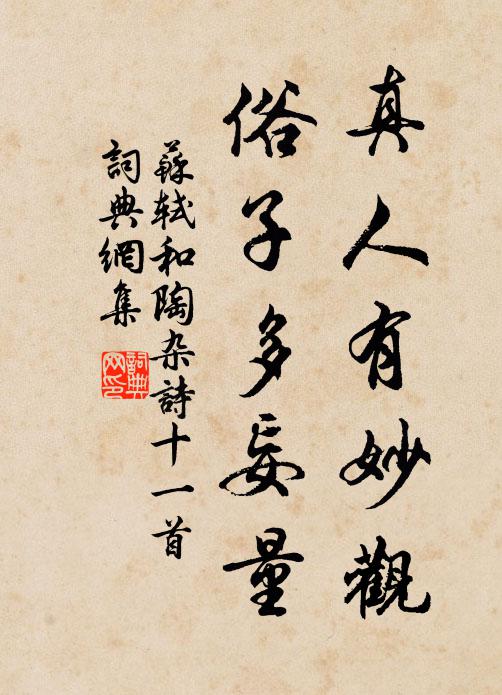 真人有妙觀
俗子多妄量
蘇軾和陶杂詩十一首
詞典網集
詞典
网印